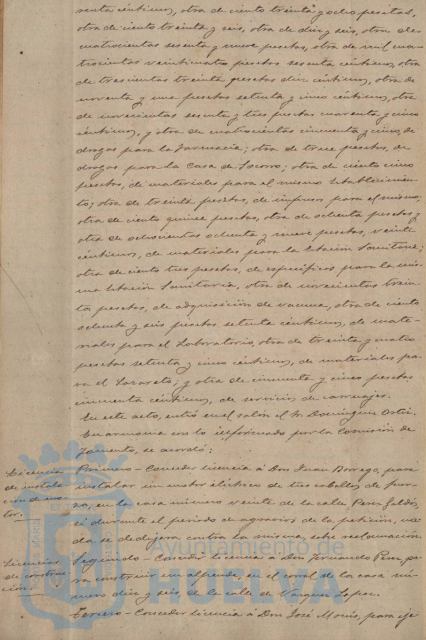 senta céntimos, otra de ciento treinta y ocho pesetas,
otra de ciento treinta y seis, otra de diez y seis, otra de
cuatrocientas sesenta y nueve pesetas, otra de mil cua-
trocientas veinticuatro pesetas sesenta céntimos, otra
de trescientas treinta pesetas diez céntimos, otra de
noventa y una pesetas setenta y cinco céntimos, otra
de novecientas sesenta y tres pesetas cuarenta y cinco
céntimos, y otra de cuatrocientas cincuenta y cinco, de
drogas para la farmacia; otra de trece pesetas, de
drogas para la Casa de Socorro; otra de ciento cinco
pesetas, de materiales para el mismo Establecimien-
to; otra de treinta pesetas, de impresos para el mismo;
otra de ciento quince pesetas, otra de ochenta pesetas y
otra de ochocientas ochenta y nueve pesetas, veinte
céntimos, de materiales para la Estación Sanitaria;
otra de ciento tres pesetas, de específicos para la mis-
ma Estación Sanitaria, otra de novecientas trein-
ta pesetas, de adquisición de vacuna, otra de ciento
ochenta y seis pesetas setenta céntimos, de mate-
riales para el Laboratorio, otra de treinta y cuatro
pesetas setenta y cinco céntimos, de materiales pa-
ra el Lazareto; y otra de cincuenta y cinco pesetas
cincuenta céntimos, de servicio de carruajes.
En este acto, entró en el salón el Sr. Domínguez Ortiz.
En armonía con lo informado por la Comisión de
Fomento, se acordó:
Licencia de instala ción de mo tor.
Primero - Conceder licencia á Don Juan Borrego, para
instalar un motor eléctrico de tres caballos de fuer-
za, en la casa número veinte de la calle Perez Galdós,
si durante el período de agravios de la petición, na-
da se dedujera contra la misma sobre reclamación.
Licencias de construc ción.
Segundo - Conceder licencia á Don Fernando Perez, pa-
ra construir un alpende, en el corral de la casa nú-
mero diez y seis, de la calle de Vazquez Lopez.
Tercero - Conceder licencia á Don José Monís, para eje
Ayuntamiento de
HUELVA